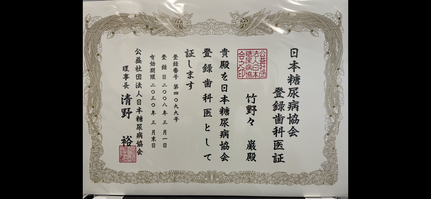 日本糖尿病協会
登録歯科医証
竹野々 巌殿
貴殿を日本糖尿病協会
登録歯科医として
証します
登録番号 第四〇九九号
登録日 二〇〇八年 三月一日
有効期限 二〇二〇年 三月末日
公益社団法人日本糖尿病協会
理事長 清野 裕